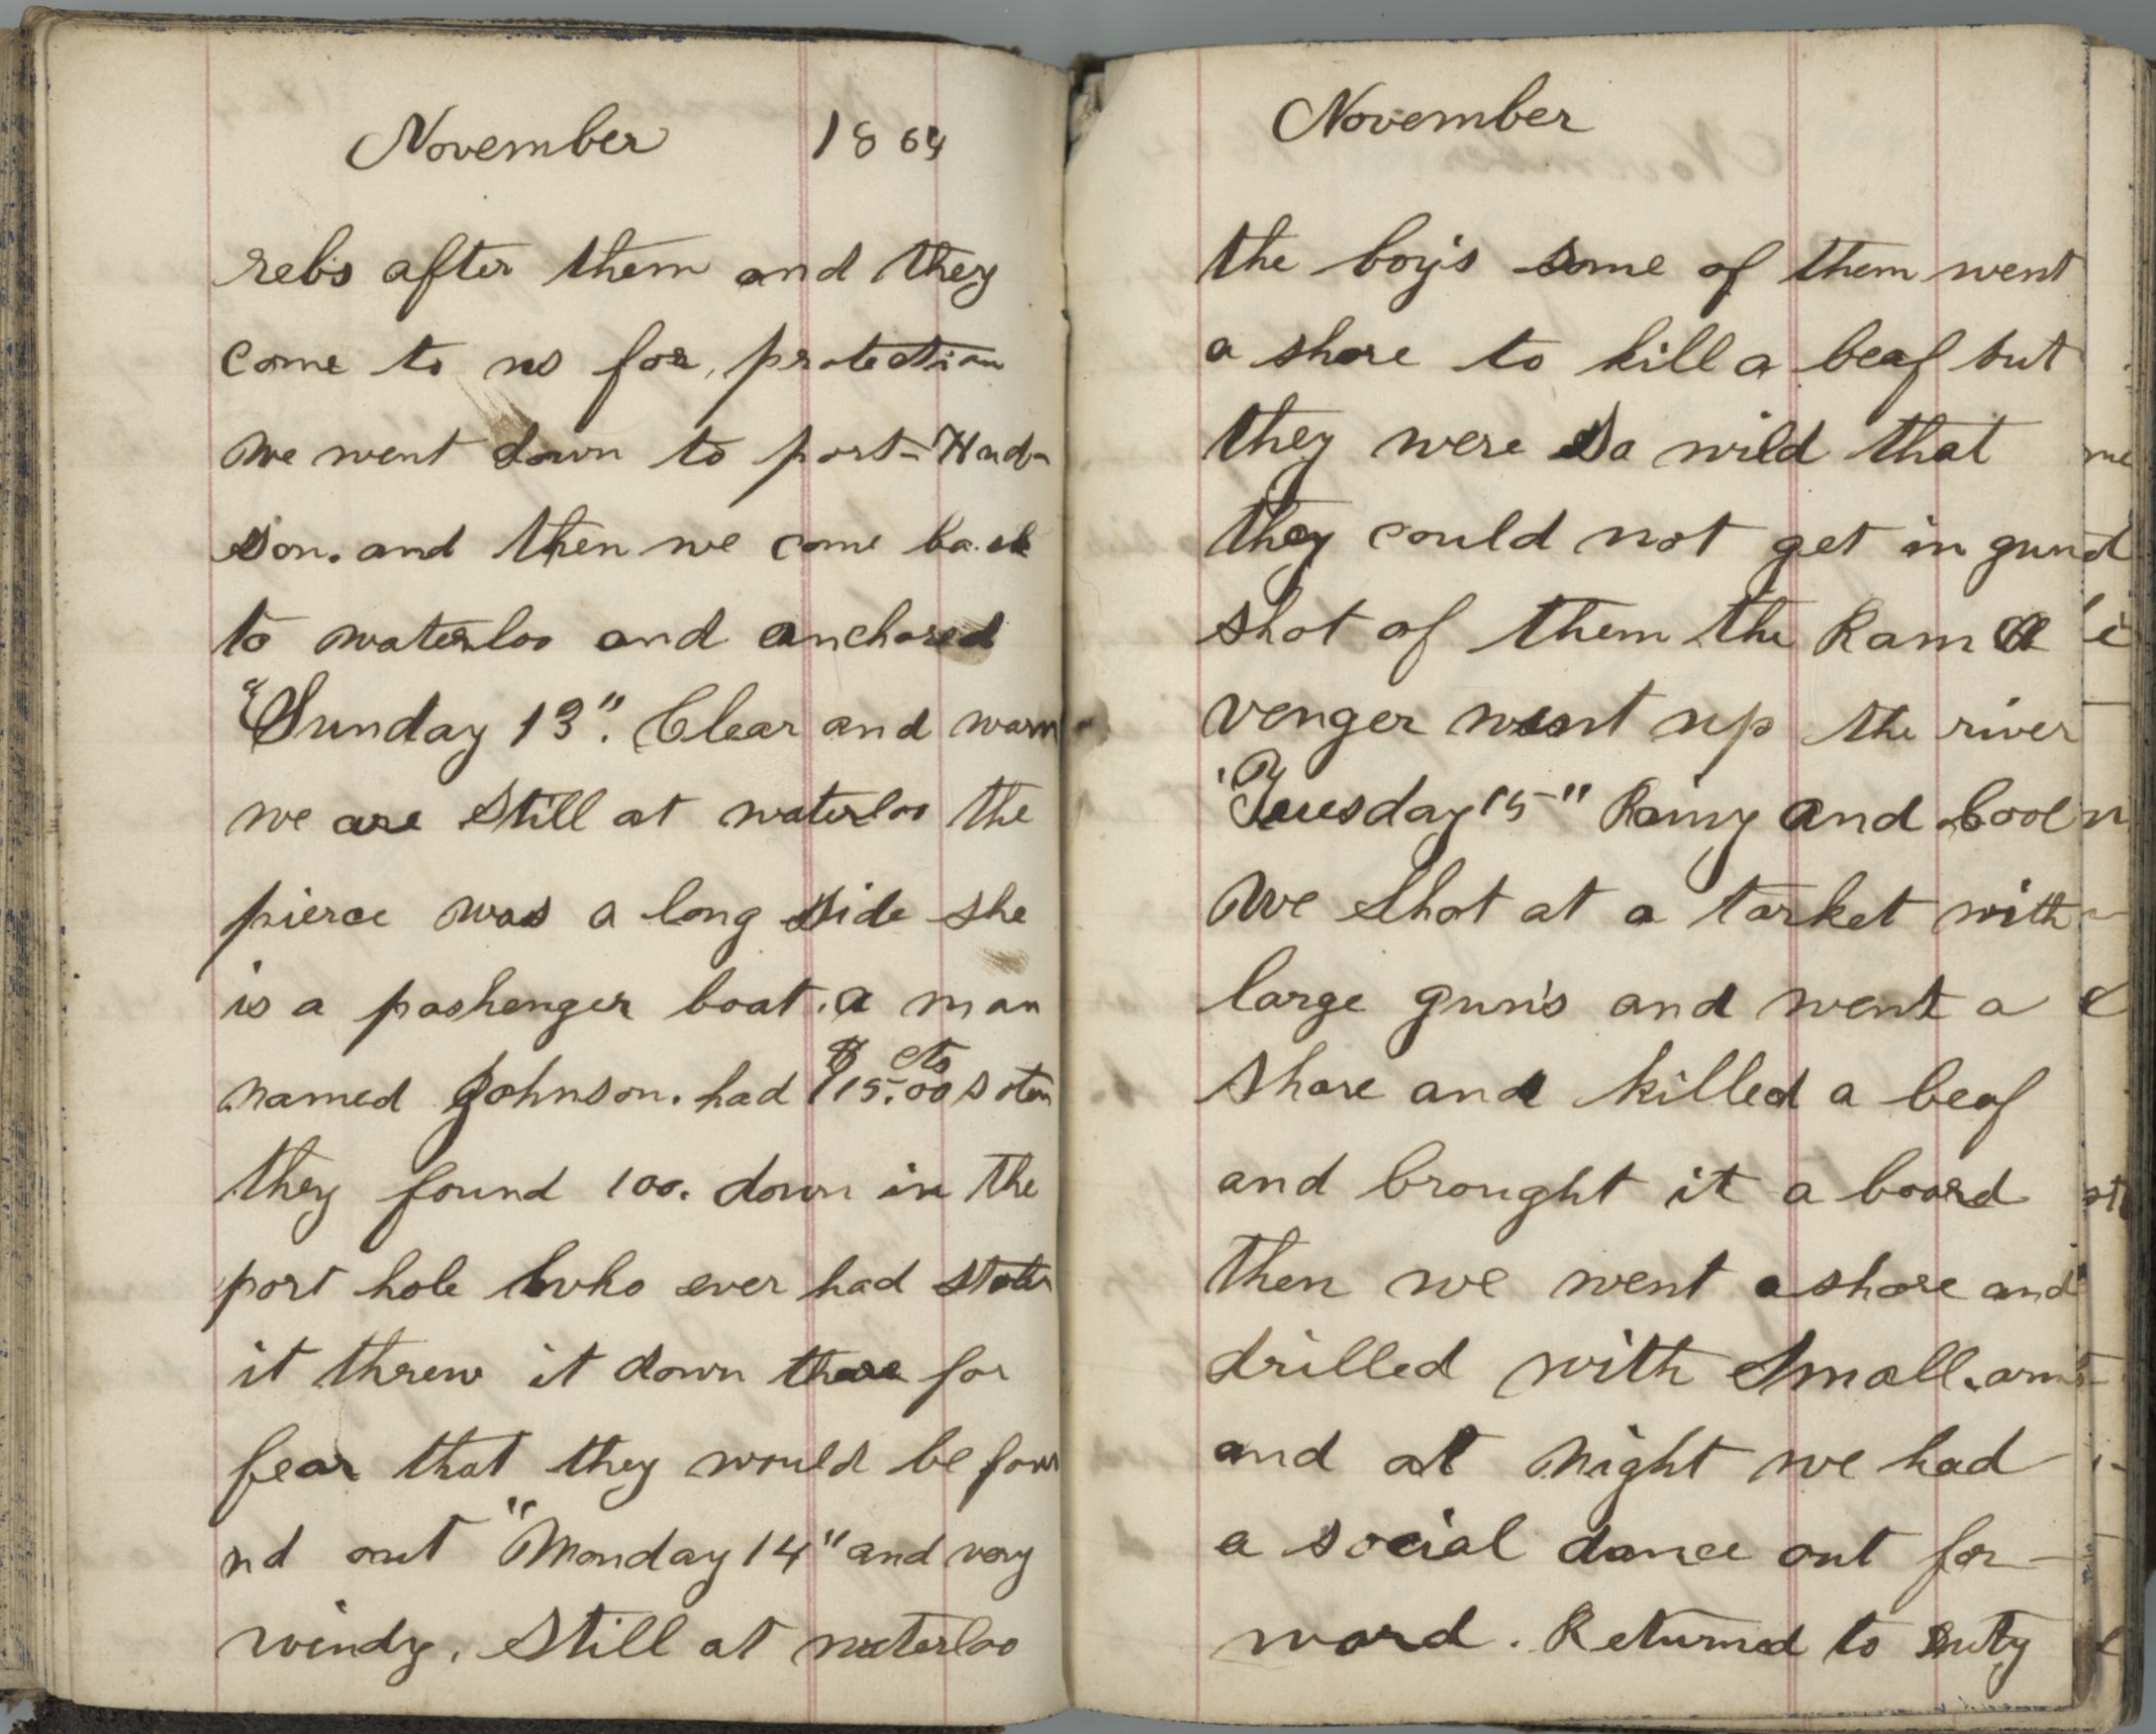 November 1864
reb's after them and they
come to us for, protection
we went down to port-Hud-
son. and then we come back
to waterloo and anchored
"Sunday 13". Clear and warm
we are still at waterloo the
pierce was a long side she
is a pashenger boat. a man
$ cts
named Johnson. had 115.00 stolen
they found 100. down in the
port hole who ever had stolen
it threw it down there for
fear that they would be fou
nd out "Monday 14" and very
windy. Still at waterloo
November
the boy's some of them went
a shore to kill a beaf but
they were so wild that
they could not get in gund
shot of them the Ram a
venger went up the river
"Tuesday 15" Rainy and Cool
we shot at a tarket with
large gun's and went a
shore and killed a beaf
and brought it a board
then we went a shore and
drilled with small.arms
and at night we had
a social dance out for-
ward. Returned to duty